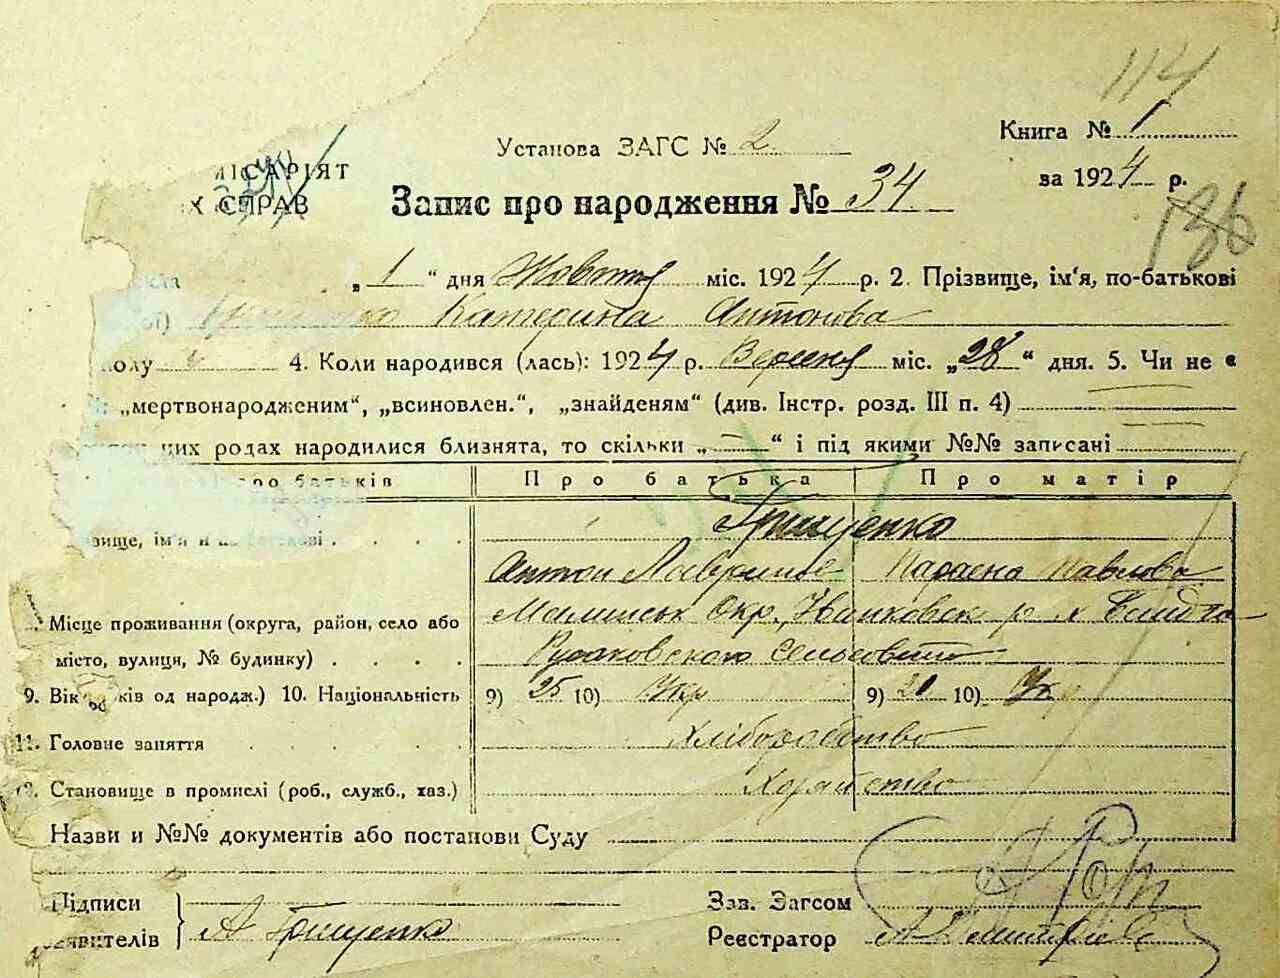 114
Установа ЗАГС № 2
Книга № 1
МІСАРІЯТ
Х СПРАВ
за 1924 р.
Запис про народження № 34
136
„1“ дня Жовтня міс. 1924 р. 2. Прізвище, ім'я, по-батькові
Катерина Антонова
полу 4. Коли народився (лась): 1924 р. Вересня міс. „28“ дня. 5. Чи не є
„мертвонародженим“, „всиновлен.“, „знайденям“ (див. Інстр. розд. III п. 4)
цих родах народилися близнята, то скільки „—“ і під якими №№ записані
про батьків Про батька Про матір
вище, ім'я и по батькові Грищенко
Антон Парасена Павлова
Місце проживання (округа, район, село або Окр., р. х
місто, вулиця, № будинку)
9. Вік років од народж.) 10. Національність 9) 25 10) Укр 9) 10) Укр
11. Головне заняття Хліборобство
12. Становище в промислі (роб., служб., хаз.)
Назви и №№ документів або постанови Суду
Підписи
заявителів А Грищенко
Зав. Загсом
Реєстратор